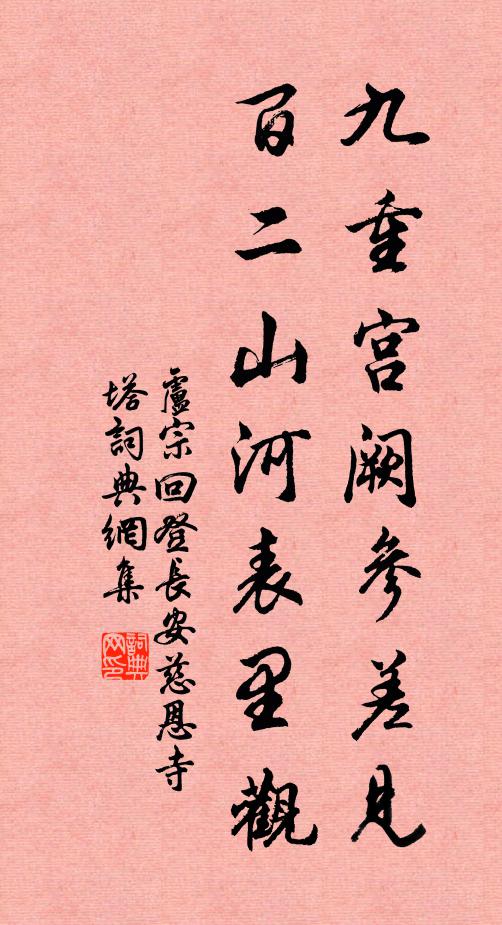 九重宫阙參差見
百二山河表里觀
盧宗回登長安慈恩寺
塔詞典網集
詞典
网印